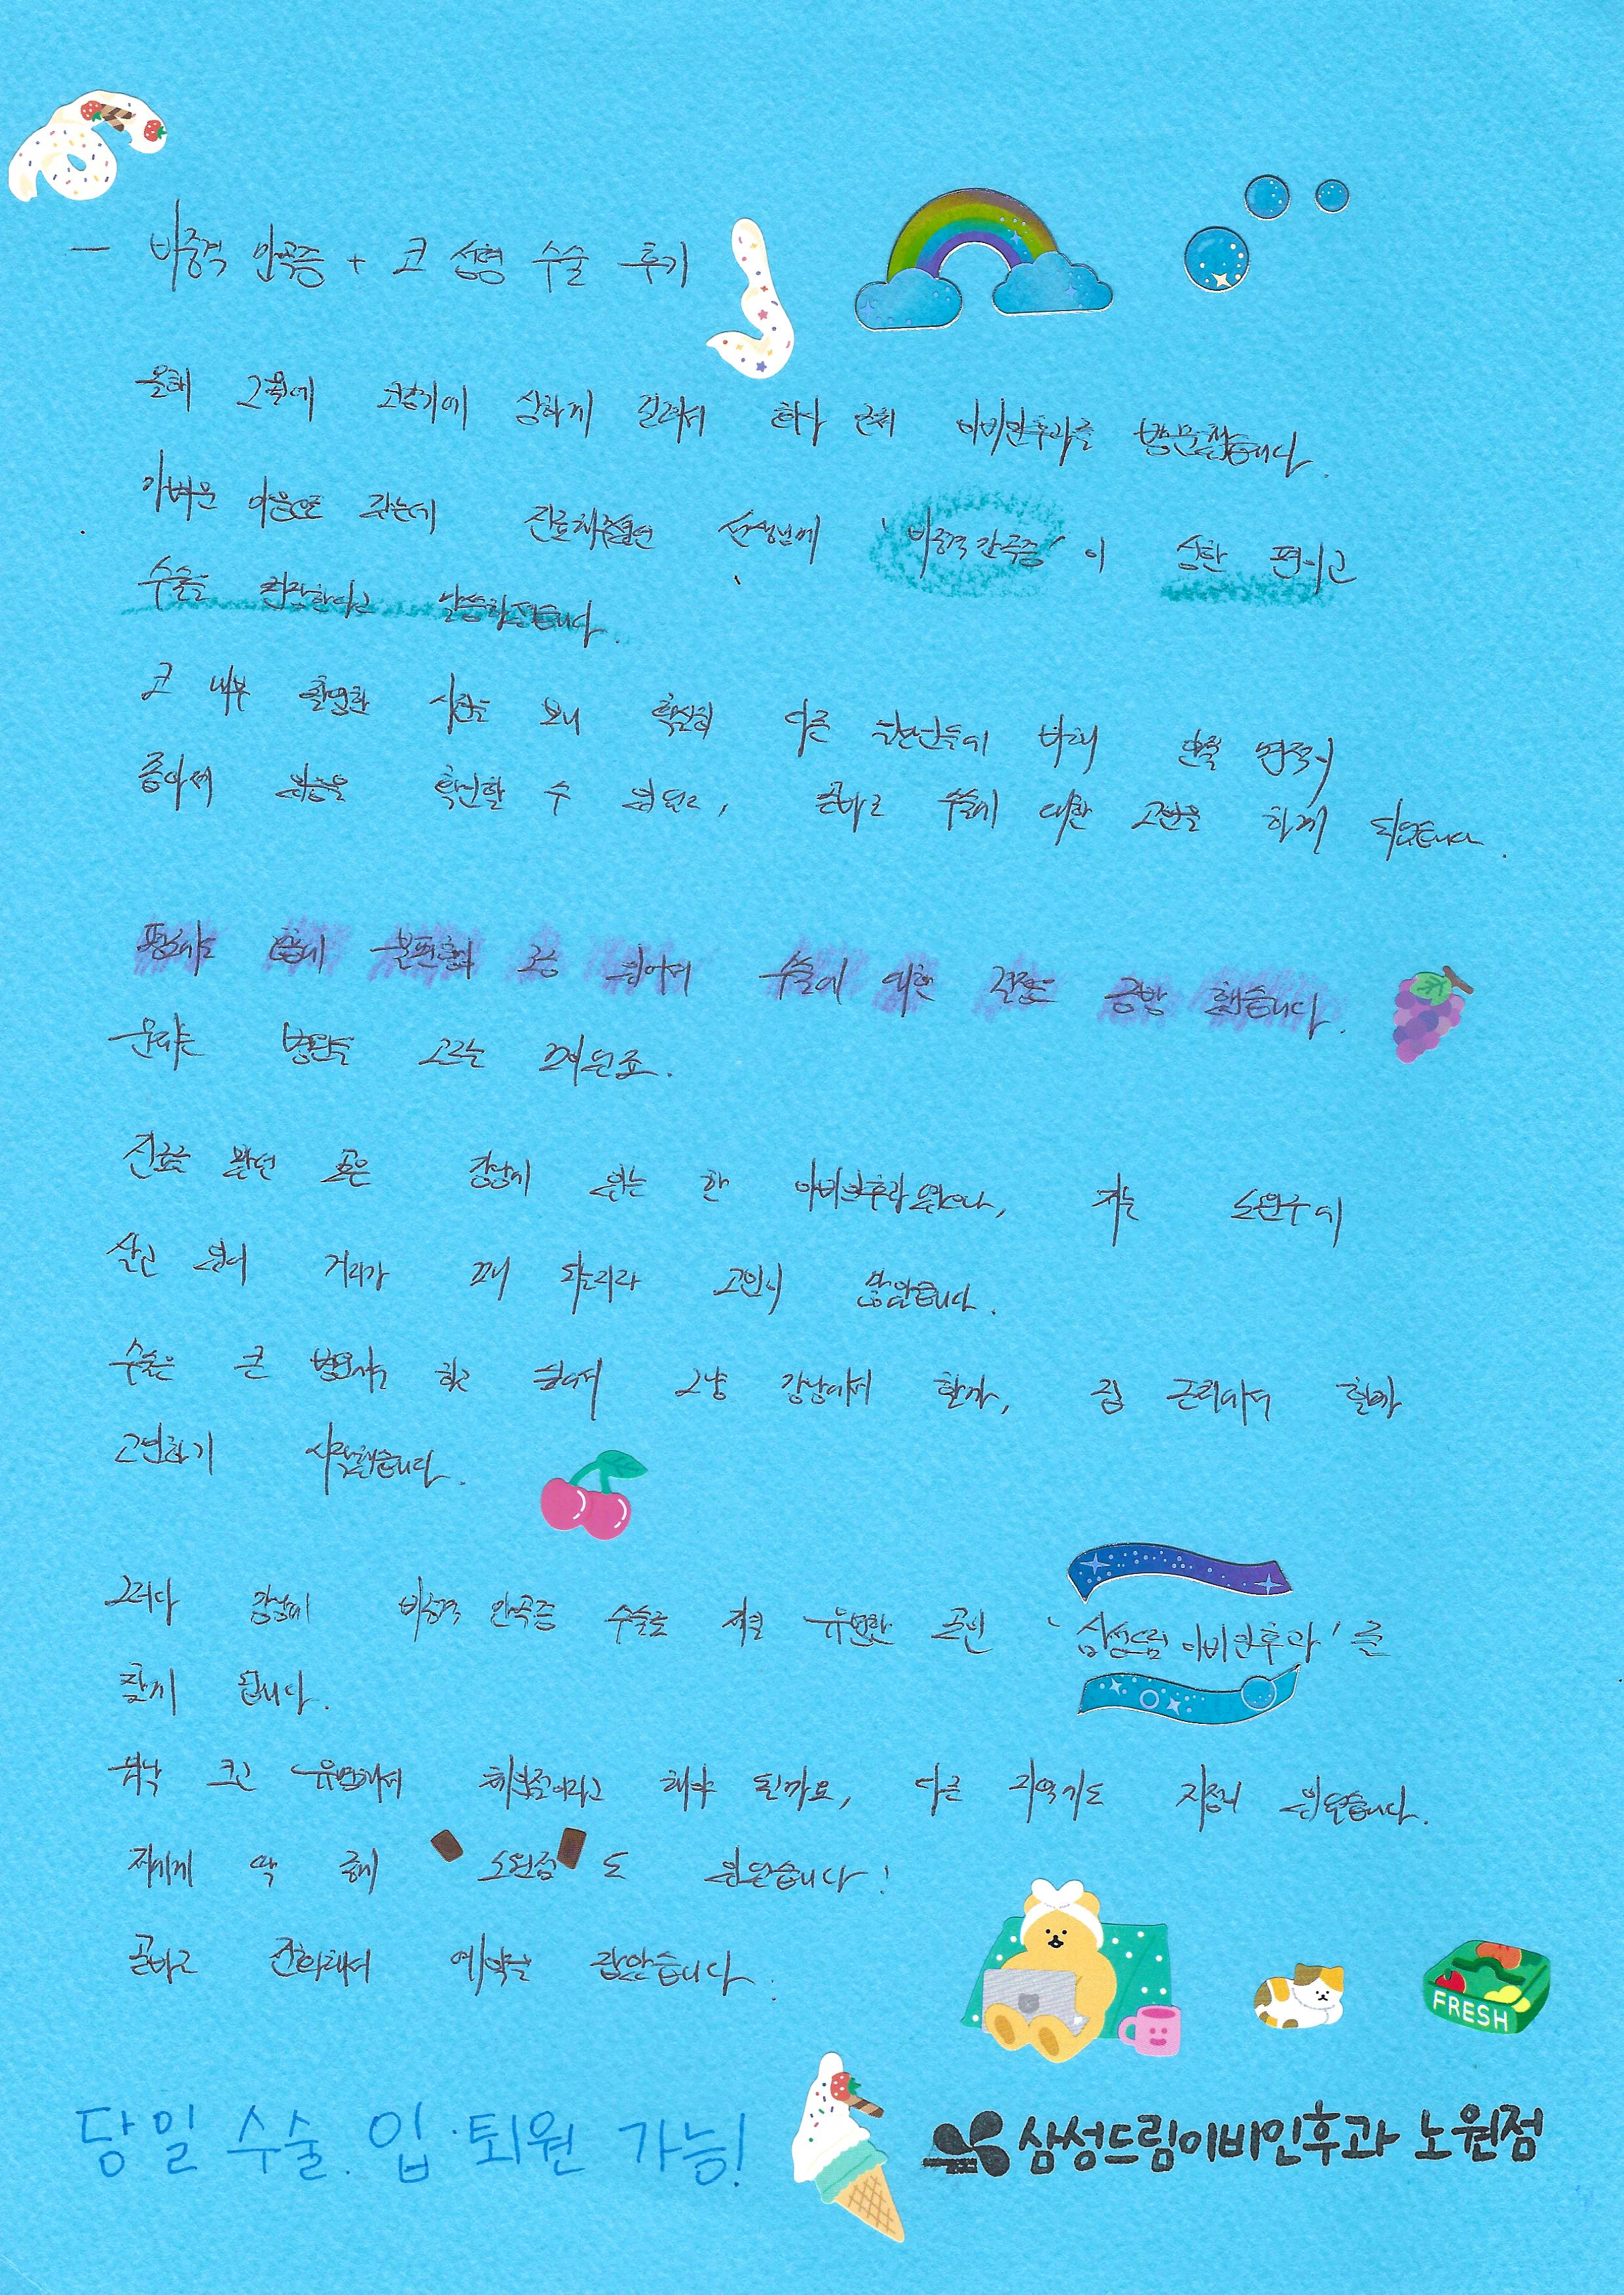 — 비중격 만곡증 + 코 성형 수술 후기
올해 2월에 코감기에 심하게 걸려서 회사 근처 이비인후과를 방문했습니다.
가벼운 마음으로 갔는데 진료해주셨던 선생님께 '비중격 만곡증'이 심한 편이고
수술을 권장한다고 말씀하셨습니다.
코 내부 촬영한 사진을 보니 확실히 다른 사람들에 비해 한쪽 면적이
좁아져 있음을 확인할 수 있었고, 곧바로 수술에 대한 고민을 하게 되었습니다.
평소에도 숨쉬기 불편함이 조금 있어서 수술에 대한 결정은 금방 했습니다.
문제는 병원을 고르는 것이었죠.
진료를 봤던 곳은 강남에 있는 한 이비인후과였으나, 저는 노원구에
살고 있어 거리가 꽤 되는지라 고민이 많았습니다.
수술은 큰 병원에서 하고 싶어서 그냥 강남에서 할까, 집 근처에서 할까
고민하기 시작했습니다.
그러다 강남에 비중격 만곡증 수술로 제일 유명한 곳인 '삼성드림이비인후과'를
찾게 됩니다.
워낙 크고 유명해서 체인점이라고 해야 될까요, 다른 지역에도 지점이 있었습니다.
저에게 딱 좋게 노원점도 있었습니다!
곧바로 전화해서 예약을 잡았습니다.
FRESH
당일 수술. 입·퇴원 가능!
삼성드림이비인후과 노원점